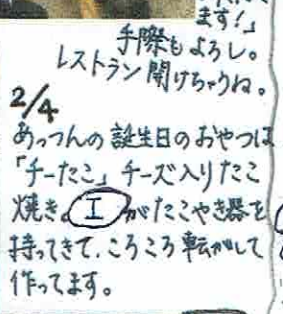 ます!」
手際もよろし。
レストラン開けちゃうね。
2/4
あっつんの誕生日のおやつは
「チーたこ」チーズ入りたこ
焼き。Iがたこやき器を
持ってきて、ころころ転がして
作ってます。